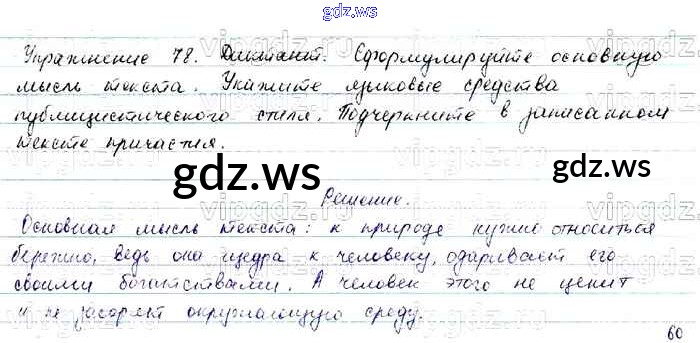 gdz.ws
Упражнение 78. Диктант. Сформулируйте основную
мысль текста. Укажите языковые средства
публицистического стиля. Подчеркните в записанном
тексте причастия.
gdz.ws gdz.ws
Решение.
Основная мысль текста: к природе нужно относиться
бережно, ведь она щедра к человеку, одаривает его
своими богатствами. А человек этого не ценит
и не засоряет окружающую среду.
60